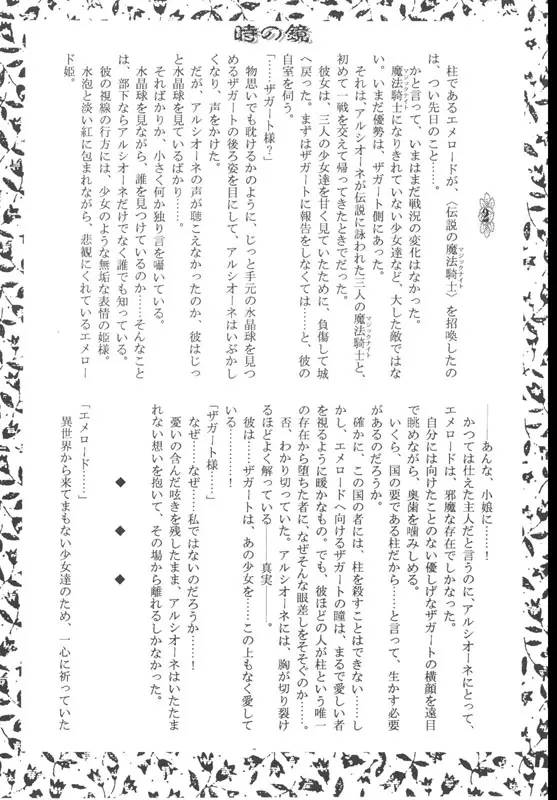 時の鏡
2
柱であるエメロードが、〈伝説の魔法騎士〉を召喚したの
マジックナイト
は、つい先日のこと……。
かと言って、いまはまだ戦況の変化はなかった。
魔法騎士になりきれていない少女達など、大した敵ではな
マジックナイト
い。いまだ優勢は、ザガート側にあった。
それは、アルシオーネが伝説に詠われた三人の魔法騎士と、
マジックナイト
初めて一戦を交えて帰ってきたときでだった。
彼女は、三人の少女達を甘く見ていたために、負傷して城
へ戻った。まずはザガートに報告をしなくては……と、彼の
自室を伺う。
「……ザガート様?」
物思いでも耽けるかのように、じっと手元の水晶球を見つ
めるザガートの後ろ姿を目にして、アルシオーネはいぶかし
くなり、声をかけた。
だが、アルシオーネの声が聴こえなかったのか、彼はじっ
と水晶球を見ているばかり……。
そればかりか、小さく何か独り言を囁いている。
水晶球を見ながら、誰を見つけているのか……そんなこと
は、部下ならアルシオーネだけでなく誰でも知っている。
彼の視線の行方には、少女のような無垢な表情の姫様。
水泡と淡い紅に包まれながら、悲観にくれているエメロー
ド姫。
――あんな、小娘に……!
かつては仕えた主人だと言うのに、アルシオーネにとって、
エメロードは、邪魔な存在でしかなかった。
自分には向けたことのない優しげなザガートの横顔を遠目
で眺めながら、奥歯を噛みしめる。
いくら、国の要である柱だから……と言って、生かす必要
があるのだろうか。
確かに、この国の者には、柱を殺すことはできない……し
かし、エメロードへ向けるザガートの瞳は、まるで愛しい者
を視るように暖かなもの。でも、彼ほどの人が柱という唯一
の存在から堕ちた者に、なぜそんな眼差しをそそぐのか……。
否、わかり切っていた。アルシオーネには、胸が切り裂け
るほどよく解っている――真実――。
彼は……ザガートは、あの少女を……この上もなく愛して
いる…………!
「ザガート様……」
なぜ……なぜ……私ではないのだろうか……!
憂いの含んだ呟きを残したまま、アルシオーネはいたたま
れない想いを抱いて、その場から離れるしかなかった。
◆ ◆ ◆
「エメロード……」
異世界から来てまもない少女達のため、一心に祈っていた